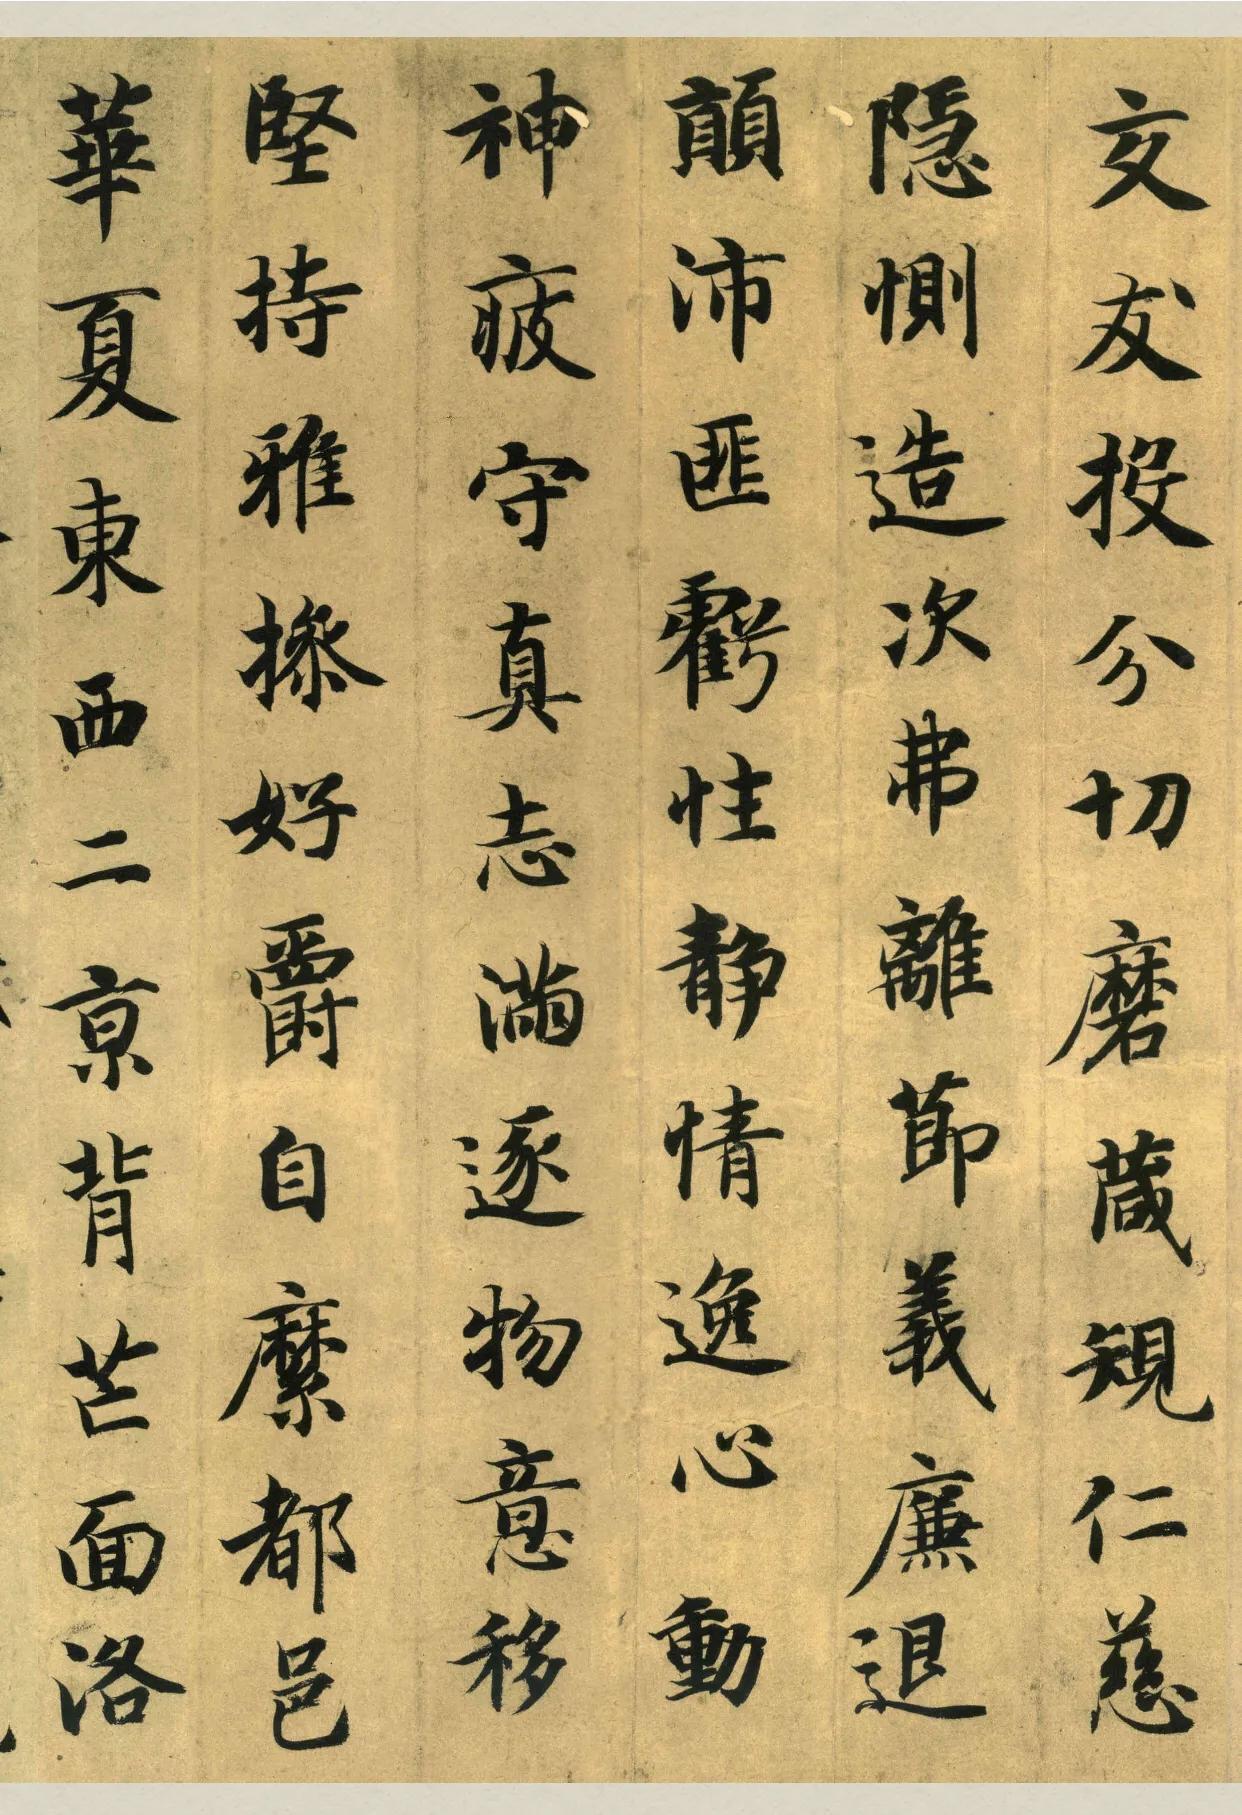 交友投分切磨箴規仁慈
隱惻造次弗離節義廉退
顛沛匪虧性靜情逸心動
神疲守真志滿逐物意移
堅持雅操好爵自縻都邑
華夏東西二京背芒面洛